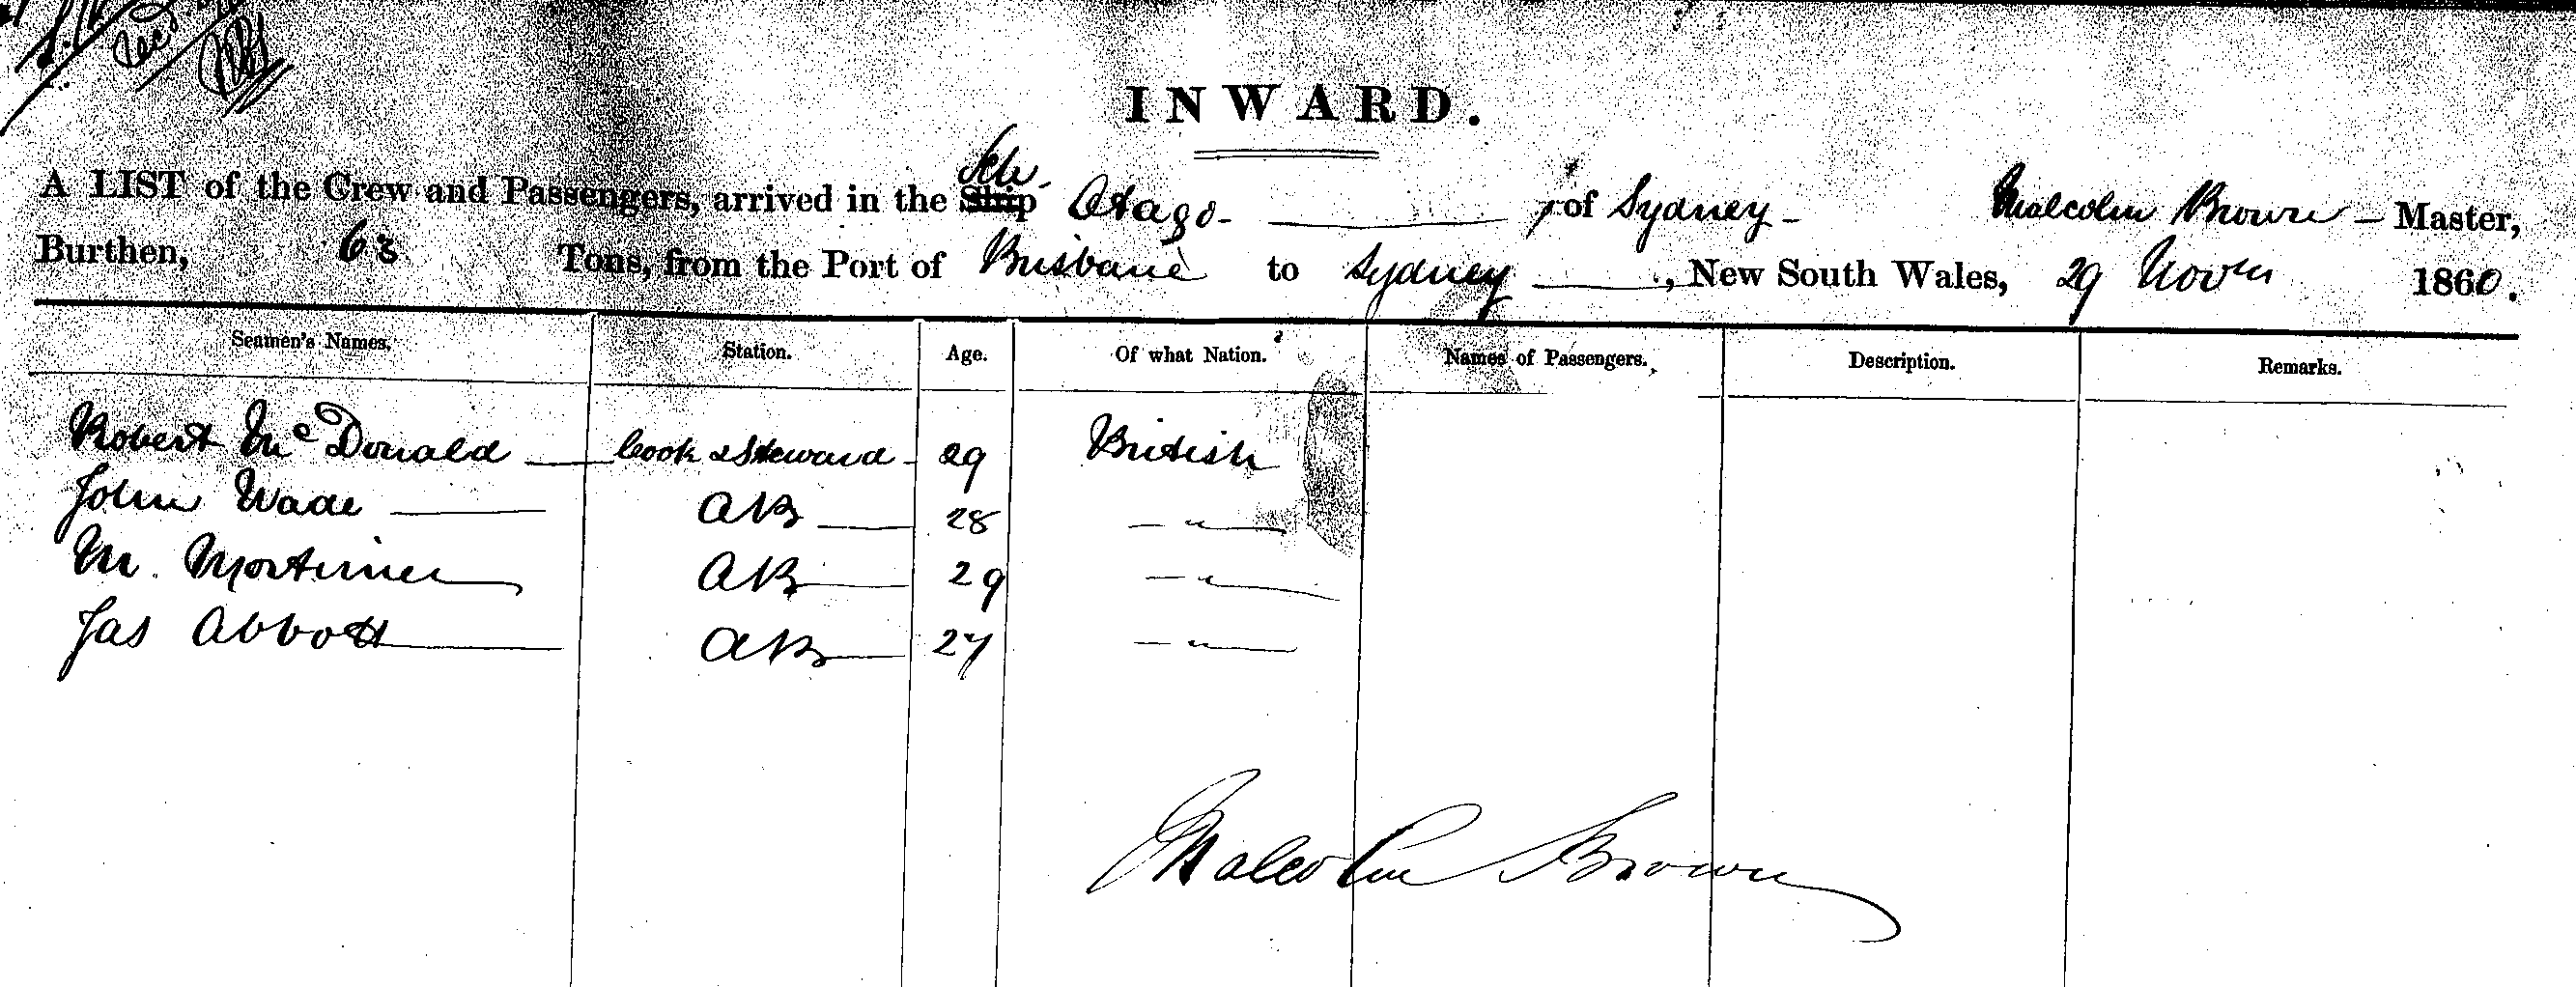 INWARD.
A LIST of the Crew and Passengers, arrived in the Ship Sch Otago of Sydney Malcolm Brown Master,
Burthen, 63 Tons, from the Port of Brisbane to Sydney, New South Wales, 29 Novr 1860.
Seamen's Names. Station. Age. Of what Nation. Names of Passengers. Description. Remarks.
Robert McDonald Cook & Steward 29 British
John Wade AB 28 "
M. Mortimer AB 29 "
Jas Abbott AB 27 "
Malcolm Brown